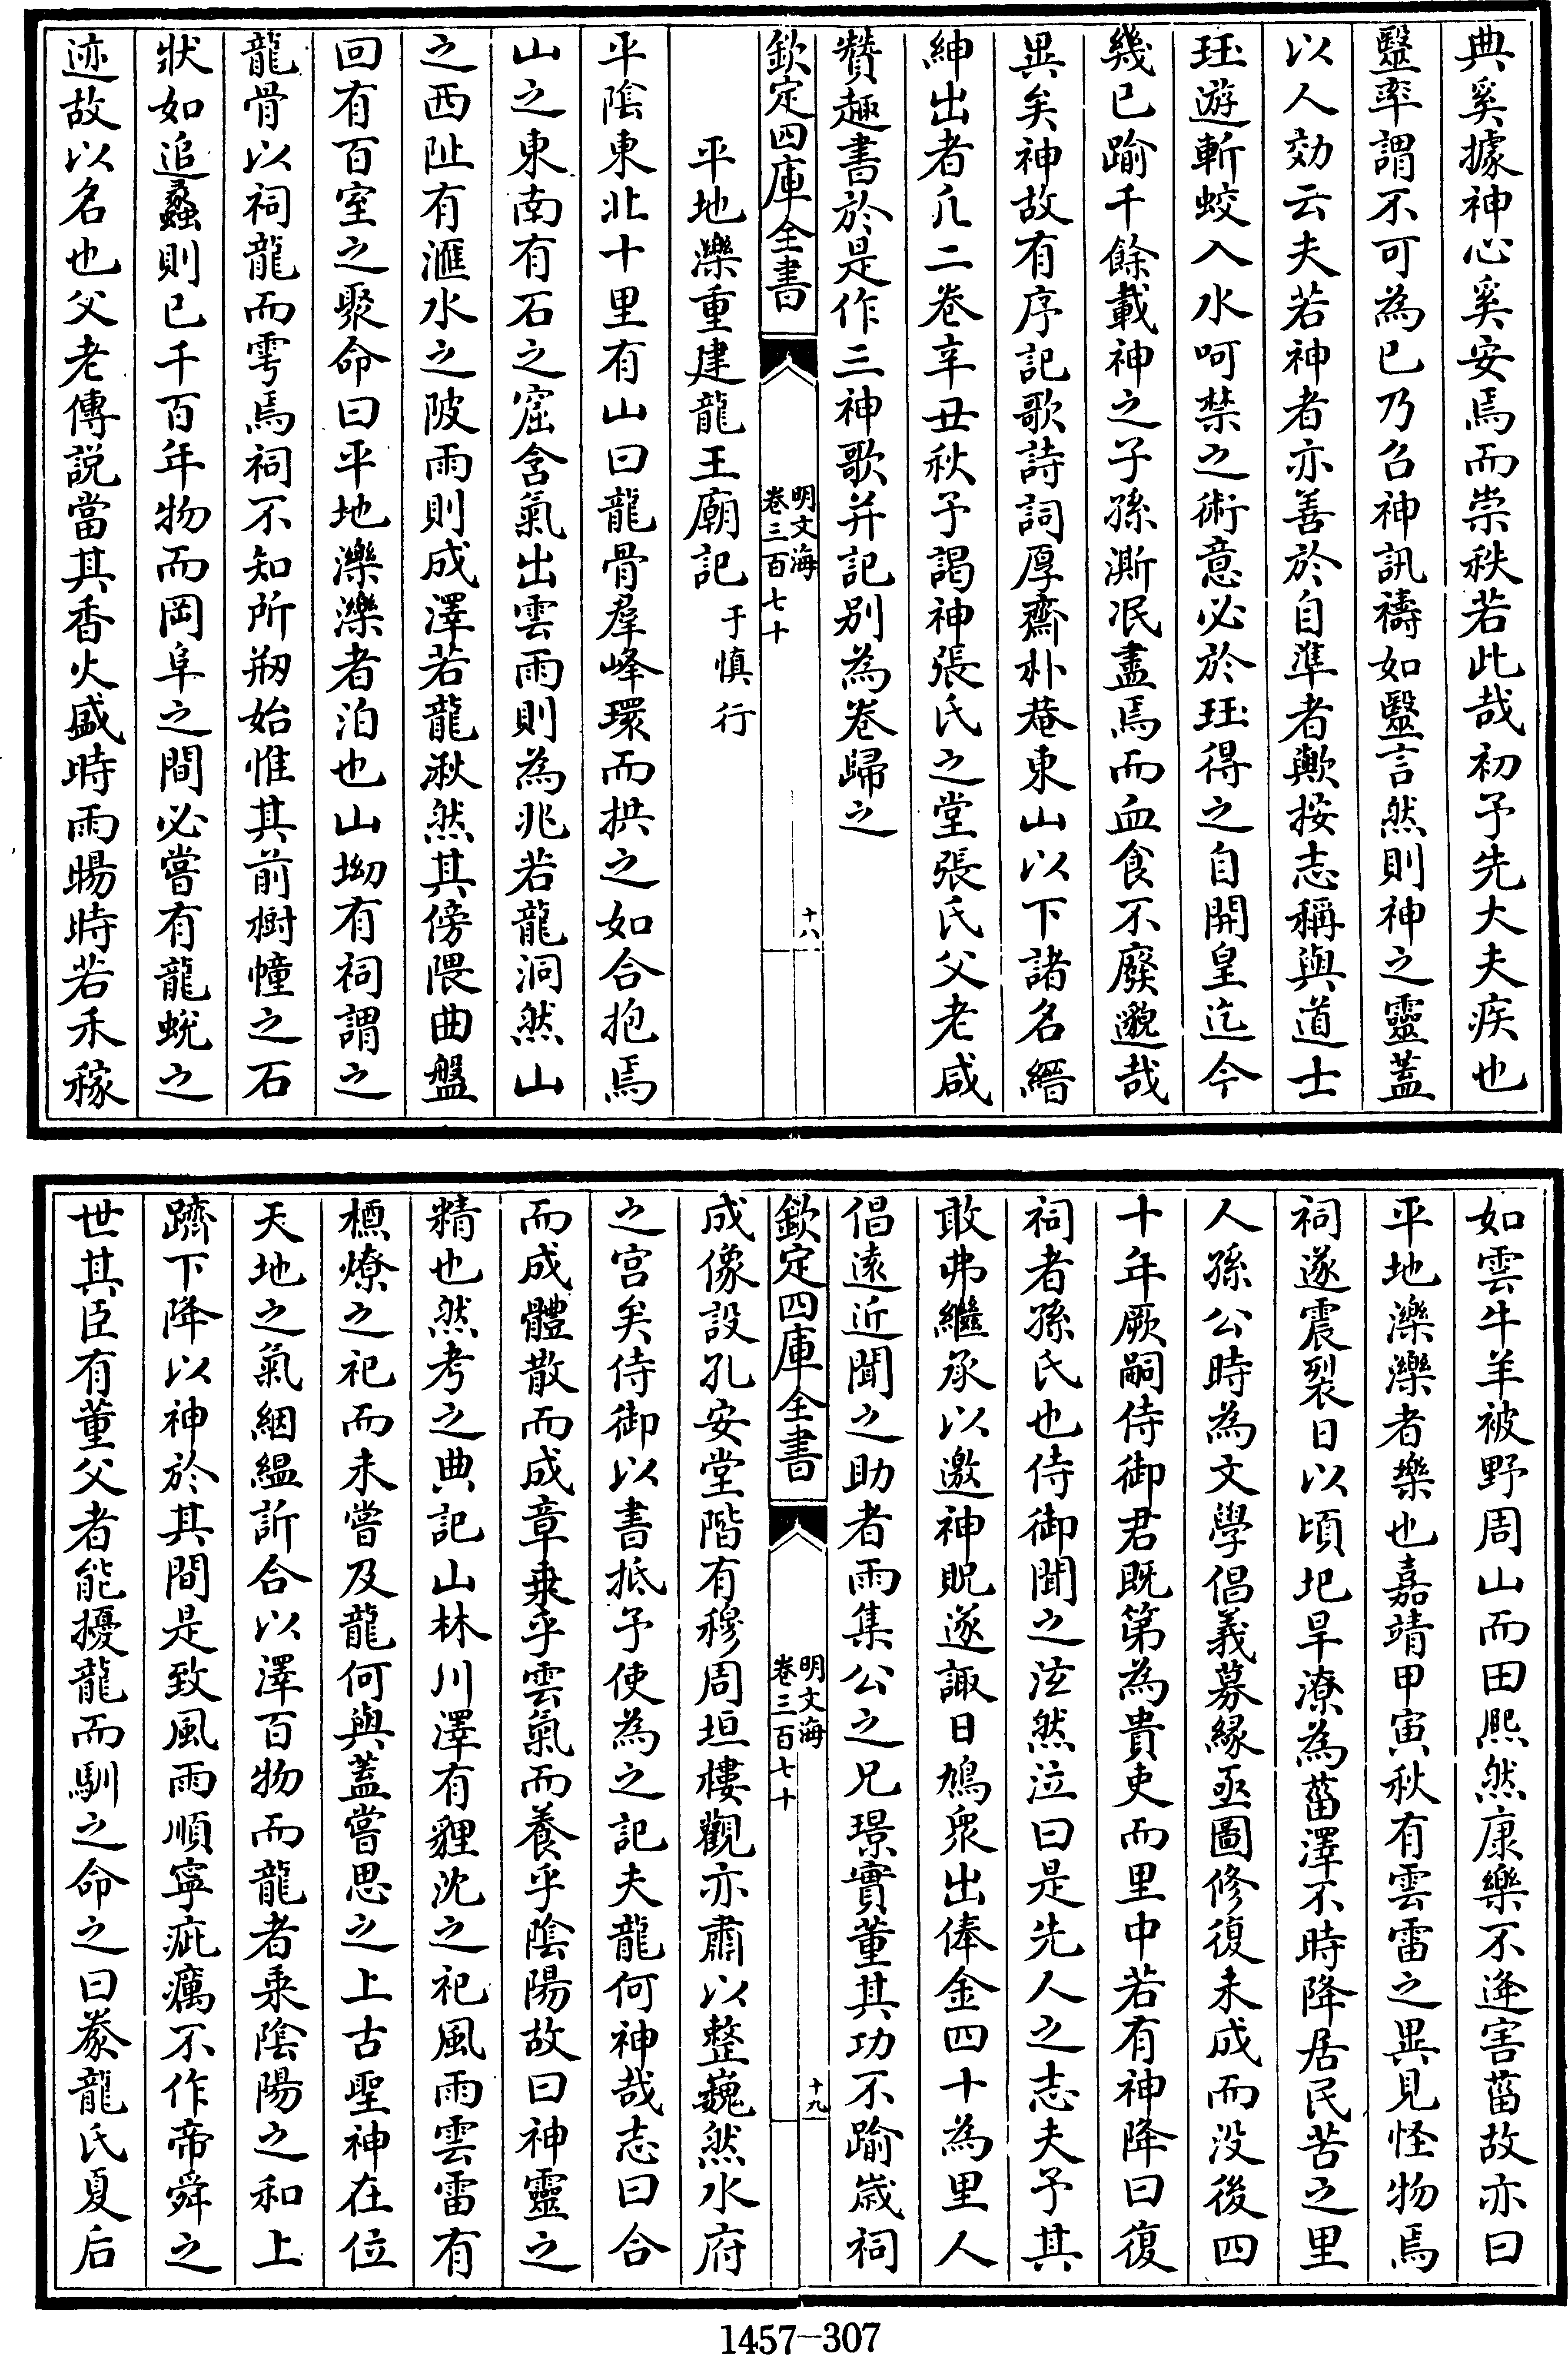 典奚據神心奚安焉而崇秩若此哉初予先大夫疾也
毉率謂不可為已乃召神訊禱如毉言然則神之靈蓋
以人効云夫若神者亦善於自準者歟按志稱與道士
珏遊斬蛟入水呵禁之術意必於珏得之自開皇迄今
幾已踰千餘載神之子孫澌泯盡焉而血食不廢邈哉
異矣神故有序記歌詩詞厚齋朴菴東山以下諸名縉
紳出者凡二卷辛丑秋予謁神張氏之堂張氏父老咸
贊趣書於是作三神歌并記别為卷歸之
欽定四庫全書
明文海
卷三百七十
十八
平地濼重建龍王廟記于慎行
平陰東北十里有山曰龍骨羣峰環而拱之如合抱焉
山之東南有石之窟含氣出雲雨則為兆若龍洞然山
之西阯有滙水之陂雨則成澤若龍湫然其傍隈曲盤
回有百室之聚命曰平地濼濼者泊也山坳有祠謂之
龍骨以祠龍而雩焉祠不知所剏始惟其前樹幢之石
狀如追蠡則已千百年物而岡阜之間必嘗有龍蛻之
迹故以名也父老傳説當其香火盛時雨暘時若禾稼
如雲牛羊被野周山而田熈然康樂不逢害菑故亦曰
平地濼濼者樂也嘉靖甲寅秋有雲雷之異見怪物焉
祠遂震裂日以頃圯旱潦為菑澤不時降居民苦之里
人孫公時為文學倡義募緣亟圖修復未成而没後四
十年厥嗣侍御君既第為貴吏而里中若有神降曰復
祠者孫氏也侍御聞之泫然泣曰是先人之志夫予其
敢弗繼承以邀神貺遂諏日鳩衆出俸金四十為里人
倡遠近聞之助者雨集公之兄璟實董其功不踰歲祠
欽定四庫全書
明文海
卷三百七十
十九
成像設孔安堂階有穆周垣樓觀亦肅以整巍然水府
之宫矣侍御以書抵予使為之記夫龍何神哉志曰合
而成體散而成章乗乎雲氣而養乎陰陽故曰神靈之
精也然考之典記山林川澤有貍沈之祀風雨雲雷有
槱燎之祀而未嘗及龍何與蓋嘗思之上古聖神在位
天地之氣絪緼訢合以澤百物而龍者乗陰陽之和上
躋下降以神於其間是致風雨順寧疵癘不作帝舜之
世其臣有董父者能擾龍而馴之命之曰豢龍氏夏后
1457—307